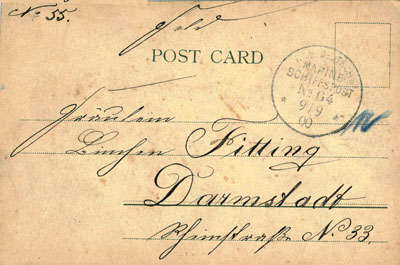 No 55.
Feld
POST CARD
K. D. MARINE
SCHIFFSPOST
No 64
9/9
00
Fräulein
Linchen Fitting
Darmstadt
Rheinstraße No 33.